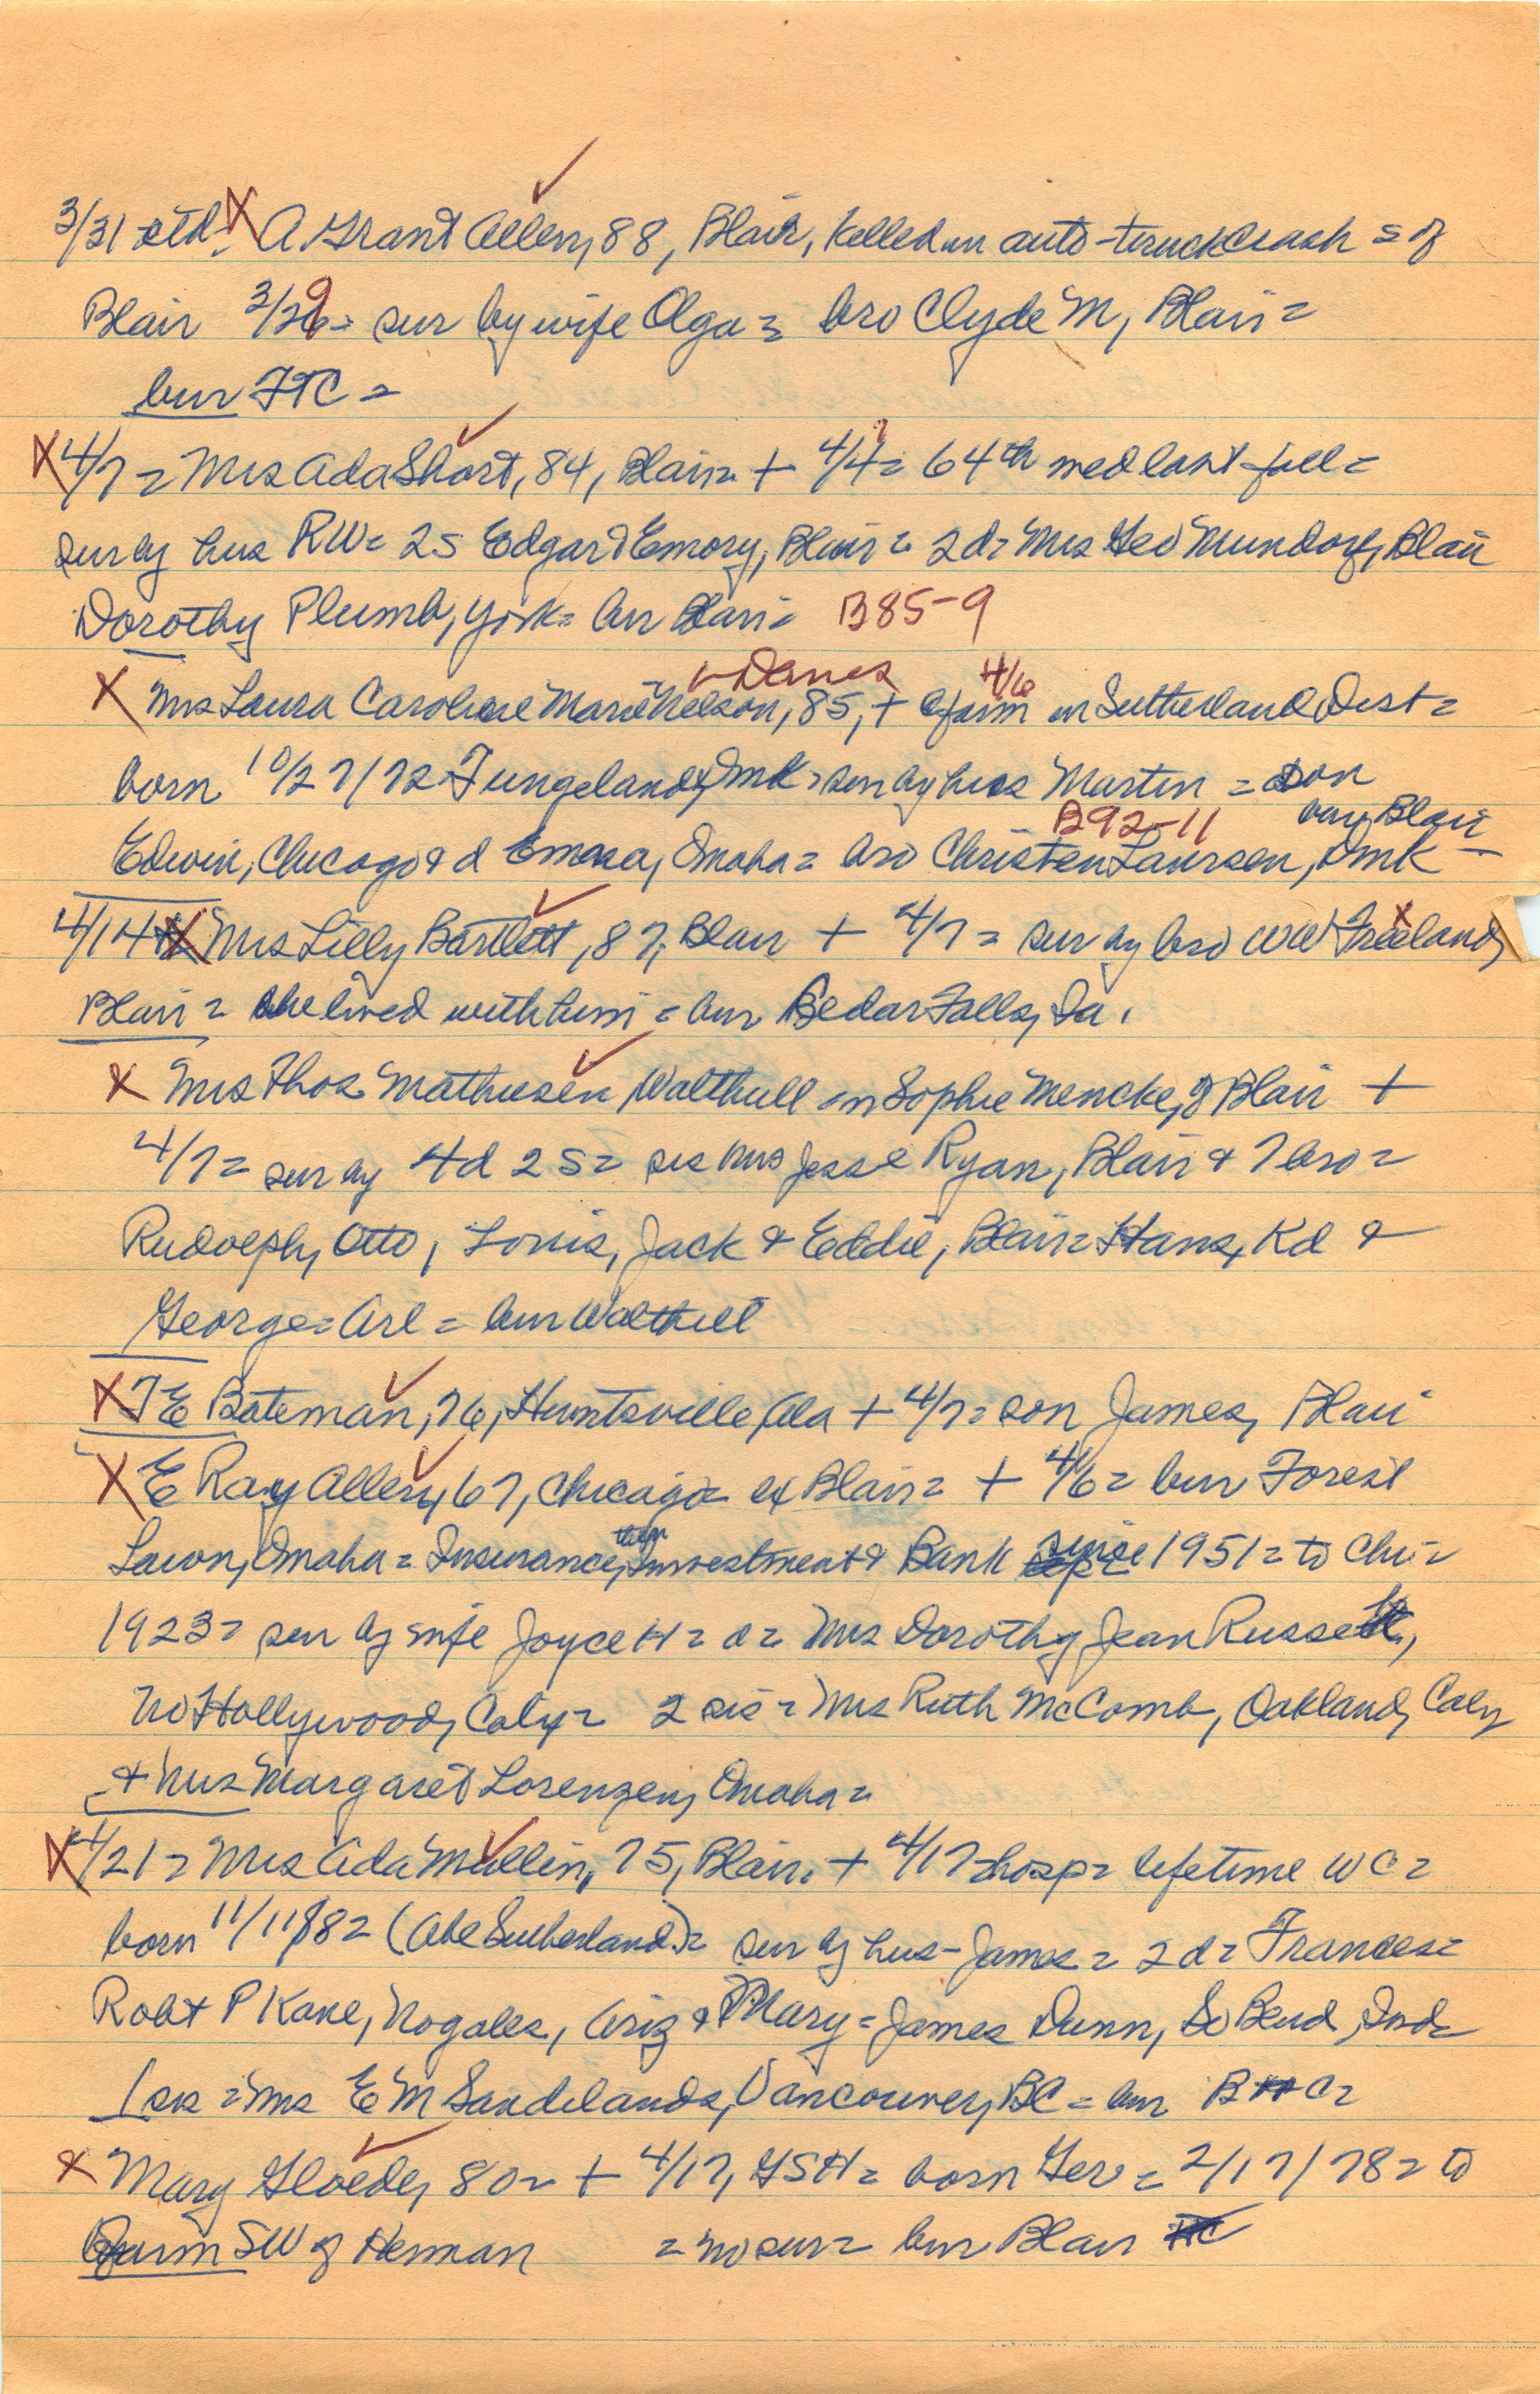 3/31 ctd - X A Grant Allen, 88, Blair, killed in auto-truck crash = of
Blair 3/29 = sur by wife Olga = bro Clyde M, Blair =
bur FTC =
X 4/7 = Mrs Ada Short, 84, Blair = + 4/4 ? = 64th wed last fall =
sur by hus RW = 2 s Edgar & Emory, Blair = 2 d = Mrs Geo Mundorf, Blair
Dorothy Plumb, York = bur Blair = B85-9
Danes 4/6
X Mrs Laura Caroline Marie Nelson, 85, + @ farm in Sutherland Dist =
born 10/27/72 Fungeland, Dmk = sur by hus Martin = son
B92-11 bur Blair
Edwin, Chicago & d Emma, Omaha = bro Christen Laursen, Dmk
4/14 X Mrs Lilly Bartlett, 87, Blair + 4/7 = sur by bro WW Freeland,
Blair = she lived with him = bur Cedar Falls, Ia.
X Mrs Thos Mathiesen, Walthill = n Sophie Mencke, of Blair +
4/7 = sur by 4 d 2 s = sis Mrs Jesse Ryan, Blair & 7 bro =
Rudolph, Otto, Louis, Jack & Eddie, Blair = Hans, Kd &
George = Arl = bur Walthill
X TE Bateman, 76, Huntsville, Ala + 4/7 = son James, Blair
X E Ray Allen, 67, Chicago = ex Blair = + 4/6 = bur Forest
then
Lawn, Omaha = Insurance, Investment & Bank since 1951 = to Chi =
1923 = sur by wife Joyce H = d = Mrs Dorothy Jean Russell,
No Hollywood, Caly = 2 sis = Mrs Ruth McComb, Oakland, Caly
& Mrs Margaret Lorenzen, Omaha =
X 4/21 = Mrs Ada Mullin, 75, Blair. + 4/17 = hosp = lifetime WC =
born 11/11/82 (Abe Sutherland) = sur by hus - James = 2 d = Frances =
Robt P Kane, Nogales, Ariz & Mary = James Dunn, So Bend, Ind =
1 sis = Mrs E M Sandilands, Vancouver, BC = bur B C =
X Mary Gloede, 80 = + 4/17, GSH = born Ger = 2/17/78 = to
@ farm SW of Herman = no sur = bur Blair